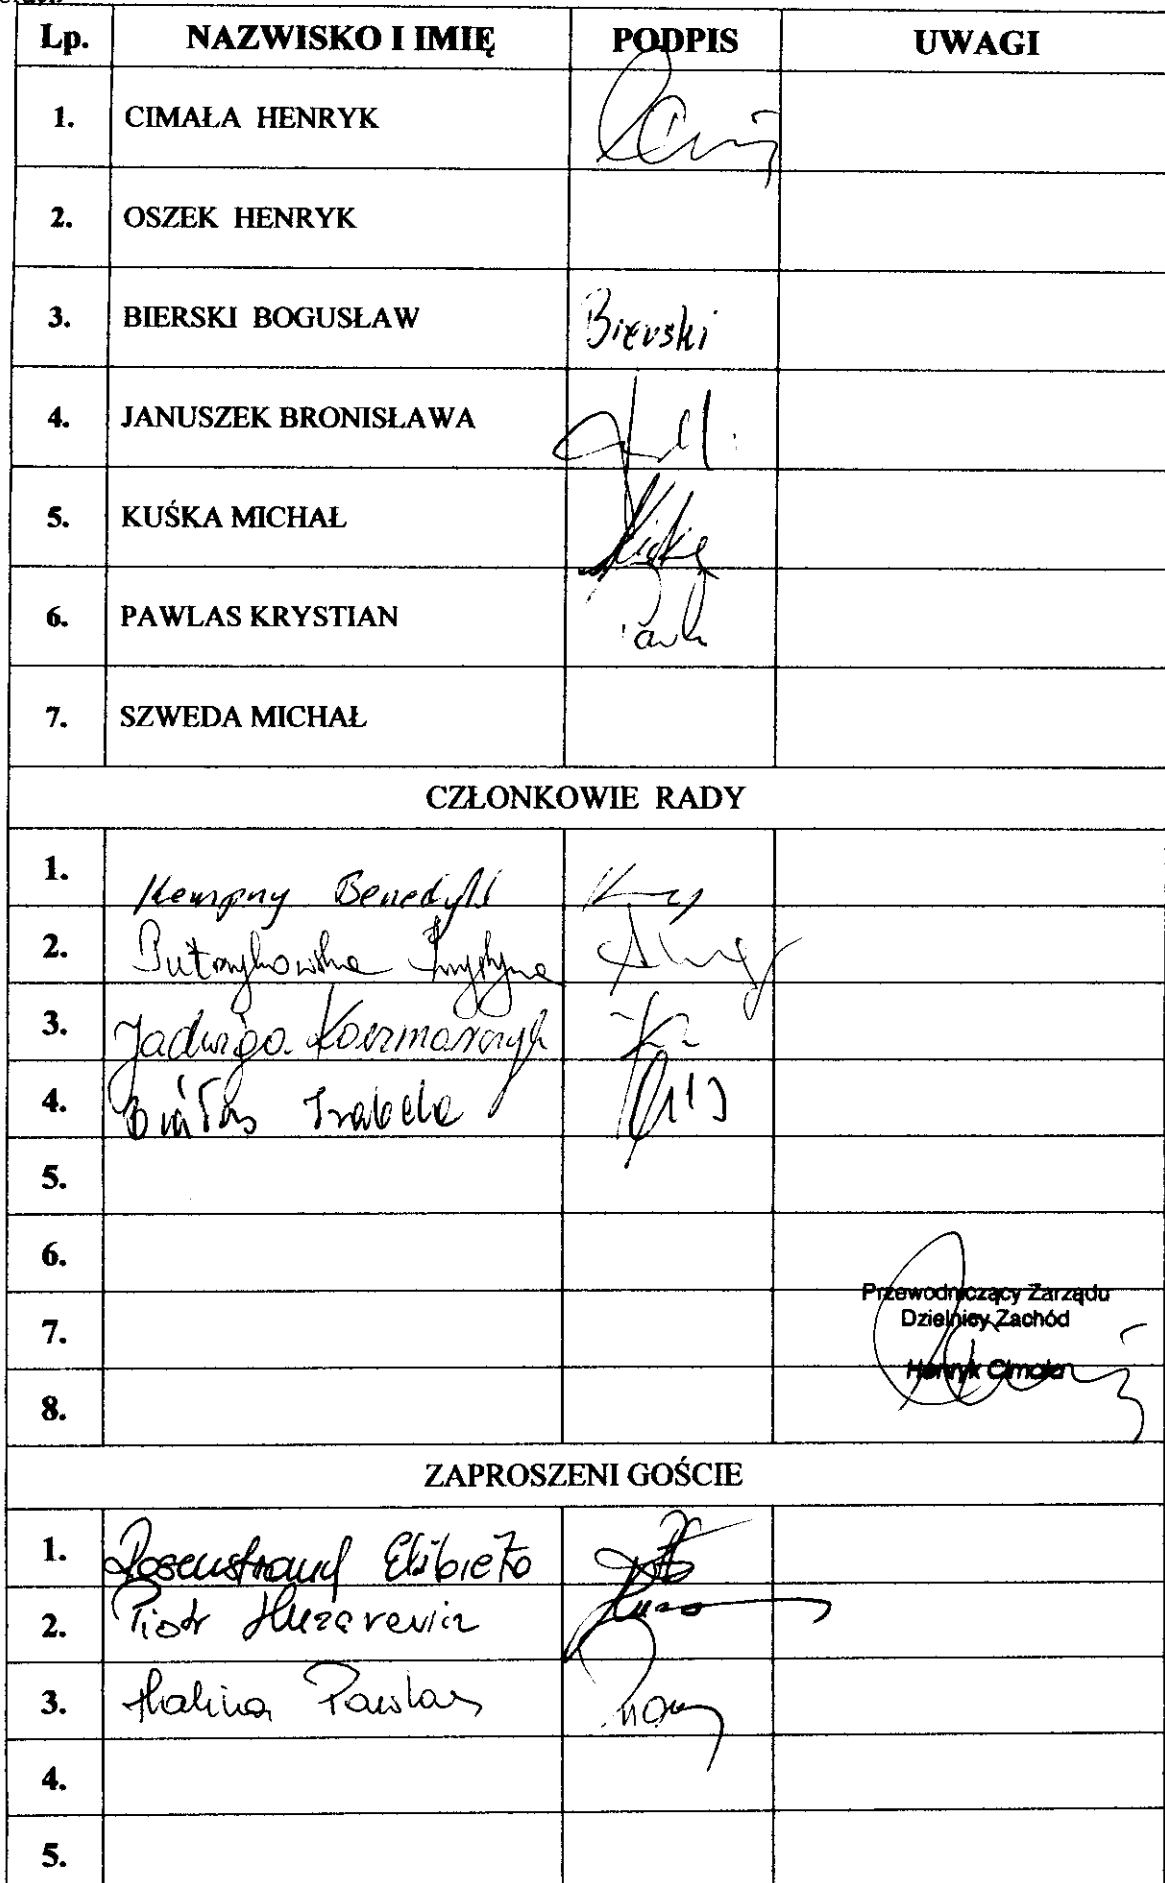 Lp. NAZWISKO I IMIĘ PODPIS UWAGI
1. CIMAŁA HENRYK
2. OSZEK HENRYK
3. BIERSKI BOGUSŁAW Bierski
4. JANUSZEK BRONISŁAWA
5. KUŚKA MICHAŁ
6. PAWLAS KRYSTIAN
7. SZWEDA MICHAŁ
CZŁONKOWIE RADY
1. Kempny Benedykt
2. Krystyna
3. Jadwiga Kaczmarczyk
4. Białas Izabela
5.
6.
Przewodniczący Zarządu
7. Dzielnicy Zachód
Henryk Cimała
8.
ZAPROSZENI GOŚCIE
1. Rosenstrauch Elżbieta
2. Piotr Huzarewicz
3. Halina Pawlas
4.
5.